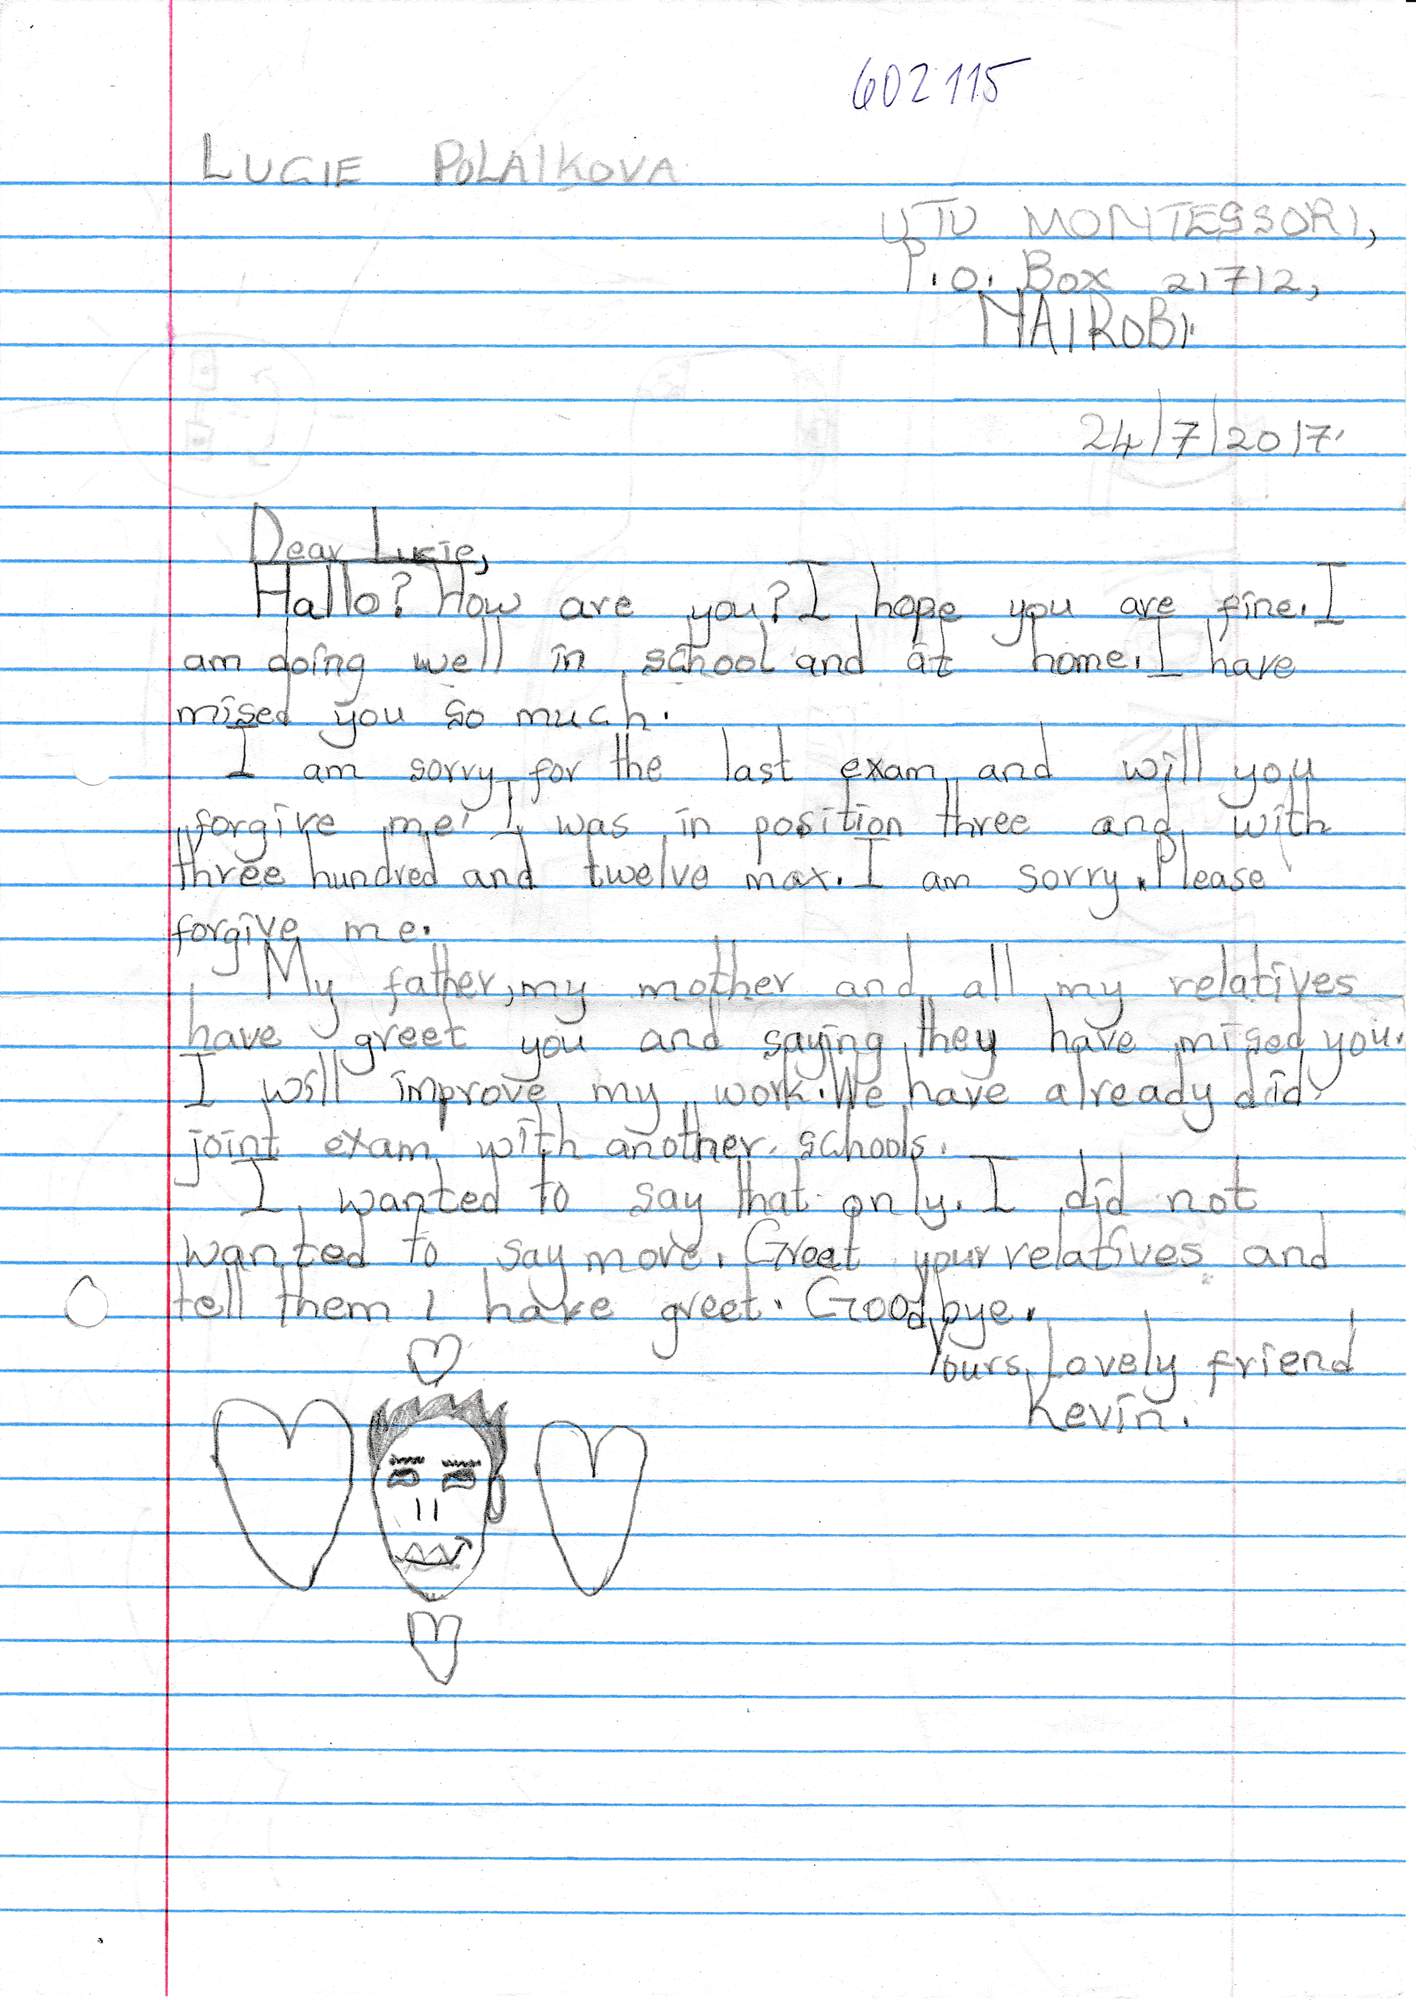 602115
LUCIE POLAIKOVA
UTU MONTESSORI,
P.O. Box 21712,
NAIROBI.
24/7/2017.
Dear Lucie,
Hallo? How are you? I hope you are fine. I
am doing well in school and at home. I have
mised you so much.
I am sorry for the last exam and will you
forgive me! I was in position three and with
three hundred and twelve max. I am sorry. Please
forgive me.
My father, my mother and all my relatives
have greet you and saying they have mised you.
I will improve my work. We have already did
joint exam with another schools.
I wanted to say that only. I did not
wanted to say more. Greet your relatives and
tell them I have greet. Goodbye.
Yours Lovely friend
Kevin.